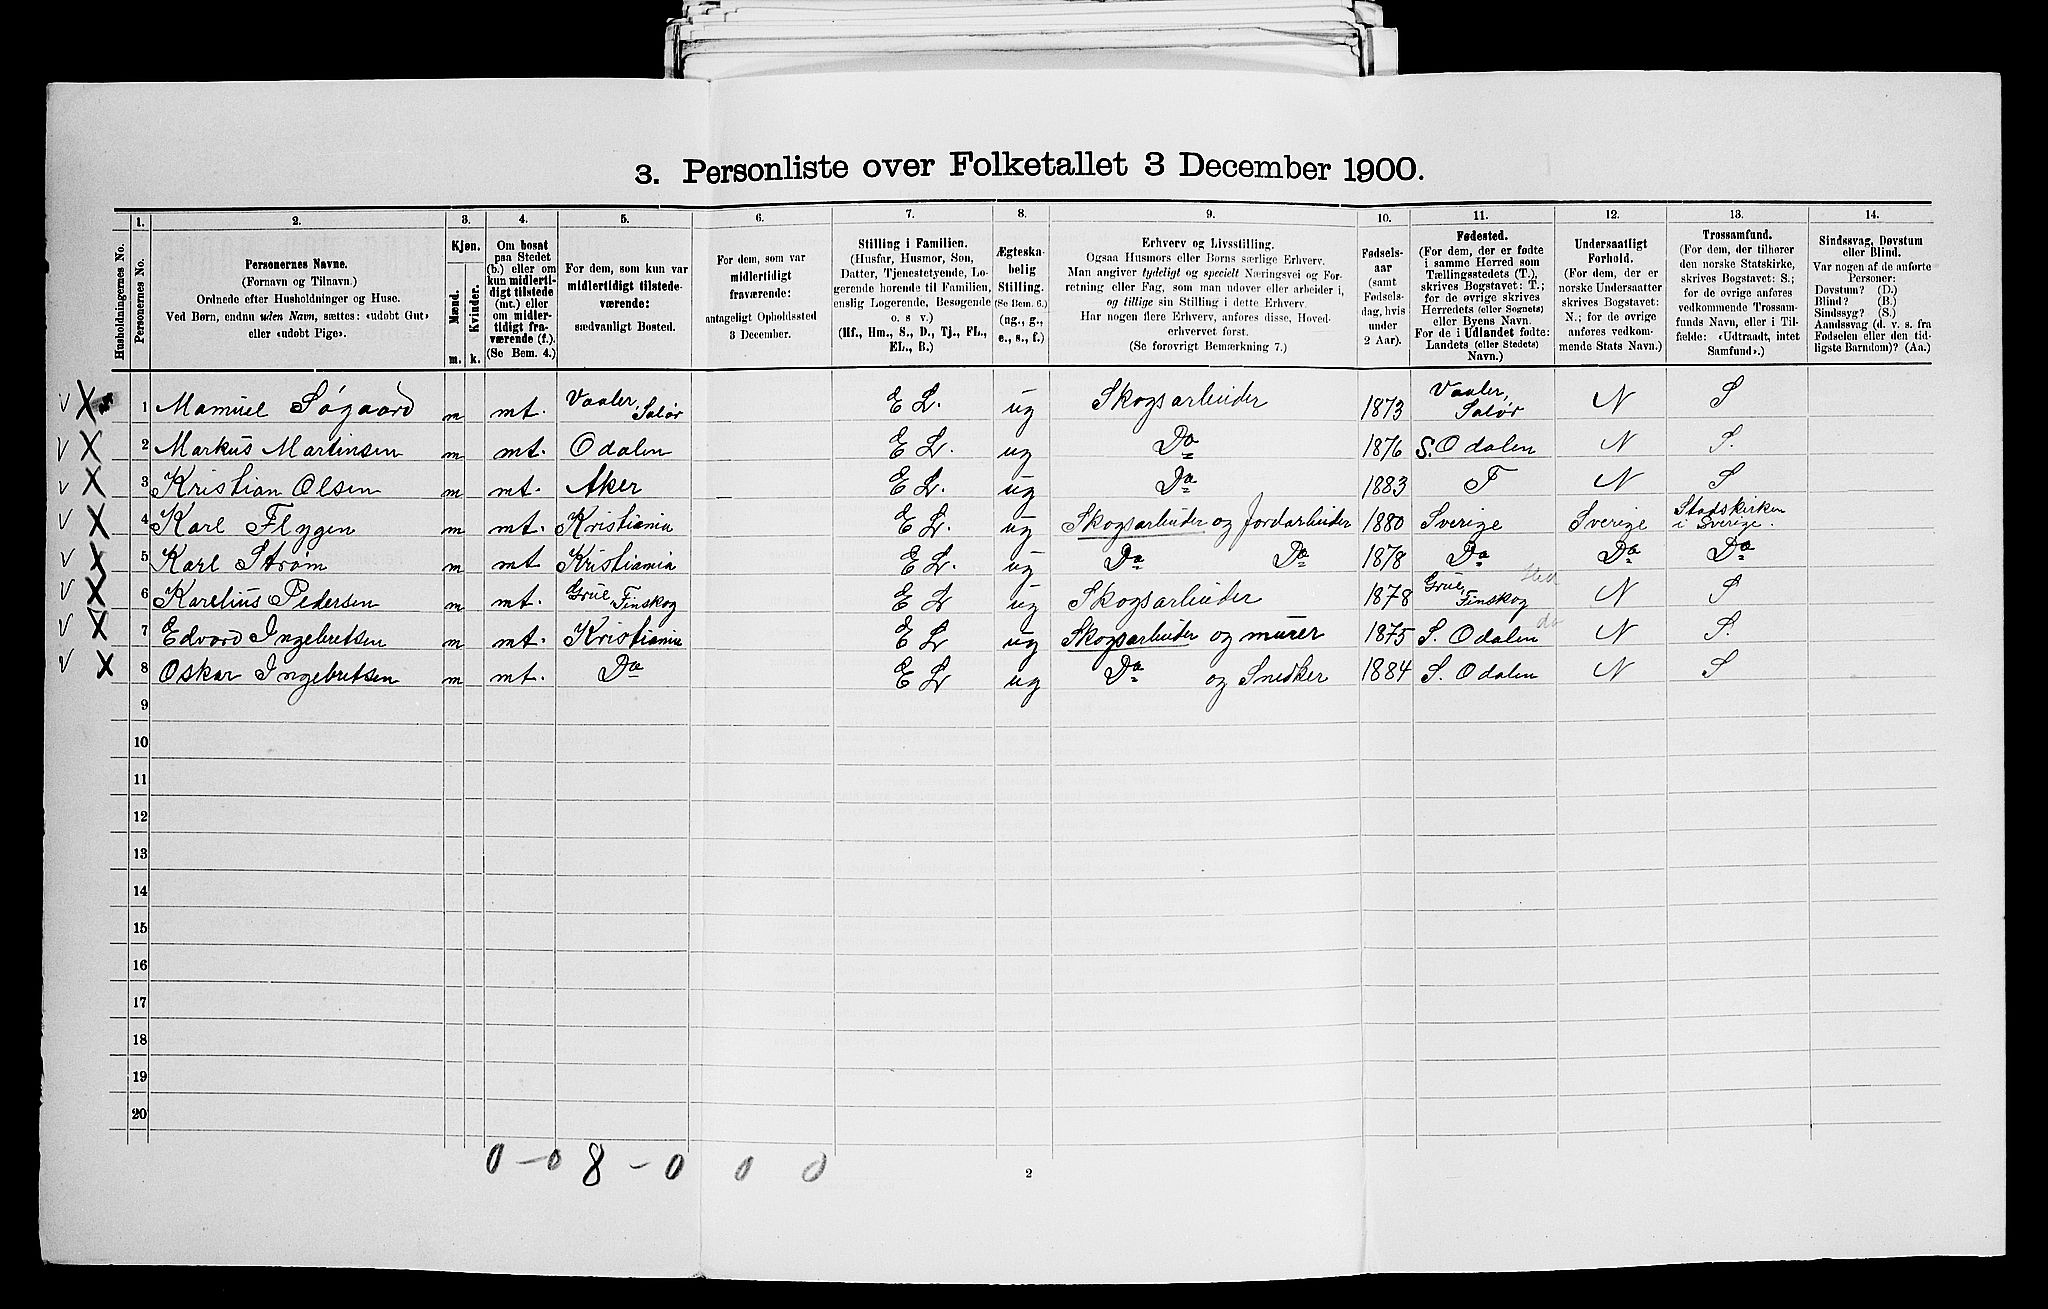 3. Personliste over Folketallet 3 December 1900.
Husholdningernes No.
1.
Personernes No.
2.
Personernes Navne.
(Fornavn og Tilnavn.)
Ordnede efter Husholdninger og Huse.
Ved Børn, endnu uden Navn, sættes: «udøbt Gut»
eller «udøbt Pige».
3.
Kjøn.
Mænd.
Kvinder.
m. k.
4.
Om bosat
paa Stedet
(b.) eller om
kun midlerti-
digt tilstede
(mt.) eller
om midler-
tidigt fra-
værende (f.).
(Se Bem. 4.)
5.
For dem, som kun var
midlertidigt tilstede-
værende:
sædvanligt Bosted.
6.
For dem, som var
midlertidigt
fraværende:
antageligt Opholdssted
3 December.
7.
Stilling i Familien.
(Husfar, Husmor, Søn,
Datter, Tjenestetyende, Lo-
gerende hørende til Familien,
enslig Logerende, Besøgende
o. s v.)
(Hf., Hm., S., D., Tj., FL.,
EL., B.)
8.
Ægteska-
belig
Stilling.
(Se Bem. 6.)
(ug., g.,
e., s., f.)
9.
Erhverv og Livsstilling.
Ogsaa Husmors eller Børns særlige Erhverv.
Man angiver tydeligt og specielt Næringsvei og For-
retning eller Fag, som man udøver eller arbeider i,
og tillige sin Stilling i dette Erhverv.
Har nogen flere Erhverv, anføres disse, Hoved-
erhvervet først.
(Se forøvrigt Bemærkning 7.)
10.
Fødsels-
aar
(samt
Fødsels-
dag, hvis
under
2 Aar).
11.
Fødested.
(For dem, der er fødte
i samme Herred som
Tællingsstedets (T.),
skrives Bogstavet: T.;
for de øvrige skrives
Herredets (eller Sognets)
eller Byens Navn.
For de i Udlandet fødte:
Landets (eller Stedets)
Navn.)
12.
Undersaatligt
Forhold.
(For dem, der er
norske Undersaatter
skrives Bogstavet:
N.; for de øvrige
anføres vedkom-
mende Stats Navn.)
13.
Trossamfund.
(For dem, der tilhører
den norske Statskirke,
skrives Bogstavet: S.;
for de øvrige anføres
vedkommende Trossam-
funds Navn, eller i Til-
fælde: «Udtraadt, intet
Samfund».)
14.
Sindssvag, Døvstum
eller Blind.
Var nogen af de anførte
Personer:
Døvstum? (D.)
Blind? (B.)
Sindssyg? (S.)
Aandssvag (d. v. s. fra
Fødselen eller den tid-
ligste Barndom)? (Aa.)
V X 1 Mamuel Søgaard m mt. Vaaler, Solør E L. ug Skogsarbeider 1873 Vaaler, Solør N S
V X 2 Markus Martinsen m mt. Odalen E L. ug Do 1876 S. Odalen N S.
V X 3 Kristian Olsen m mt. Aker E L. ug Do 1883 T N S
V X 4 Karl Flygen m mt. Kristiania E L. ug Skogsarbeider og Jordarbeider 1880 Sverige Sverige Stadskirken i Sverige.
V X 5 Karl Strøm m mt Kristiania E L. ug Do Do 1878 Do Do Do
V X 6 Karelius Pedersen m mt. Grue Finskog E L ug Skogsarbeider 1878 Grue, Finskog Hed N S
V X 7 Edvard Ingebretsen m mt. Kristiania E L ug Skogsarbeider og murer 1875 S. Odalen do N S.
V X 8 Oskar Ingebretsen m mt. Do E L ug Do og Snedker 1884 S. Odalen N S
9
10
11
12
13
14
15
16
17
18
19
20
0 - 0 8 - 0 0 0
2